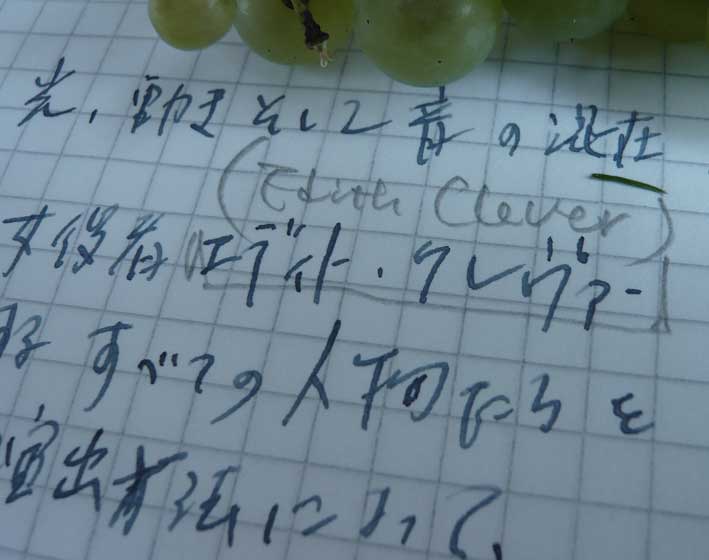 光、動きそして音の混在
(Edith Clever)
女役者 エディト・クレヴァー
は すべての人物たちを
演出方法によって、